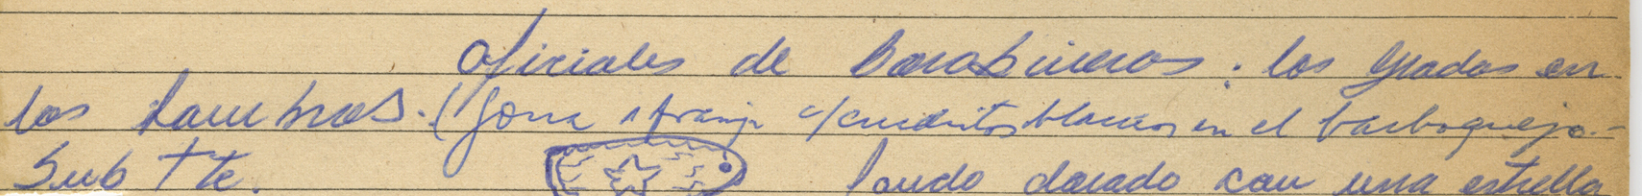 Oficiales de Carabineros: los grados en
los hombros. (Gorra c/ blancos en el barboquejo.-
Sub Tte. fondo dorado con una estrella